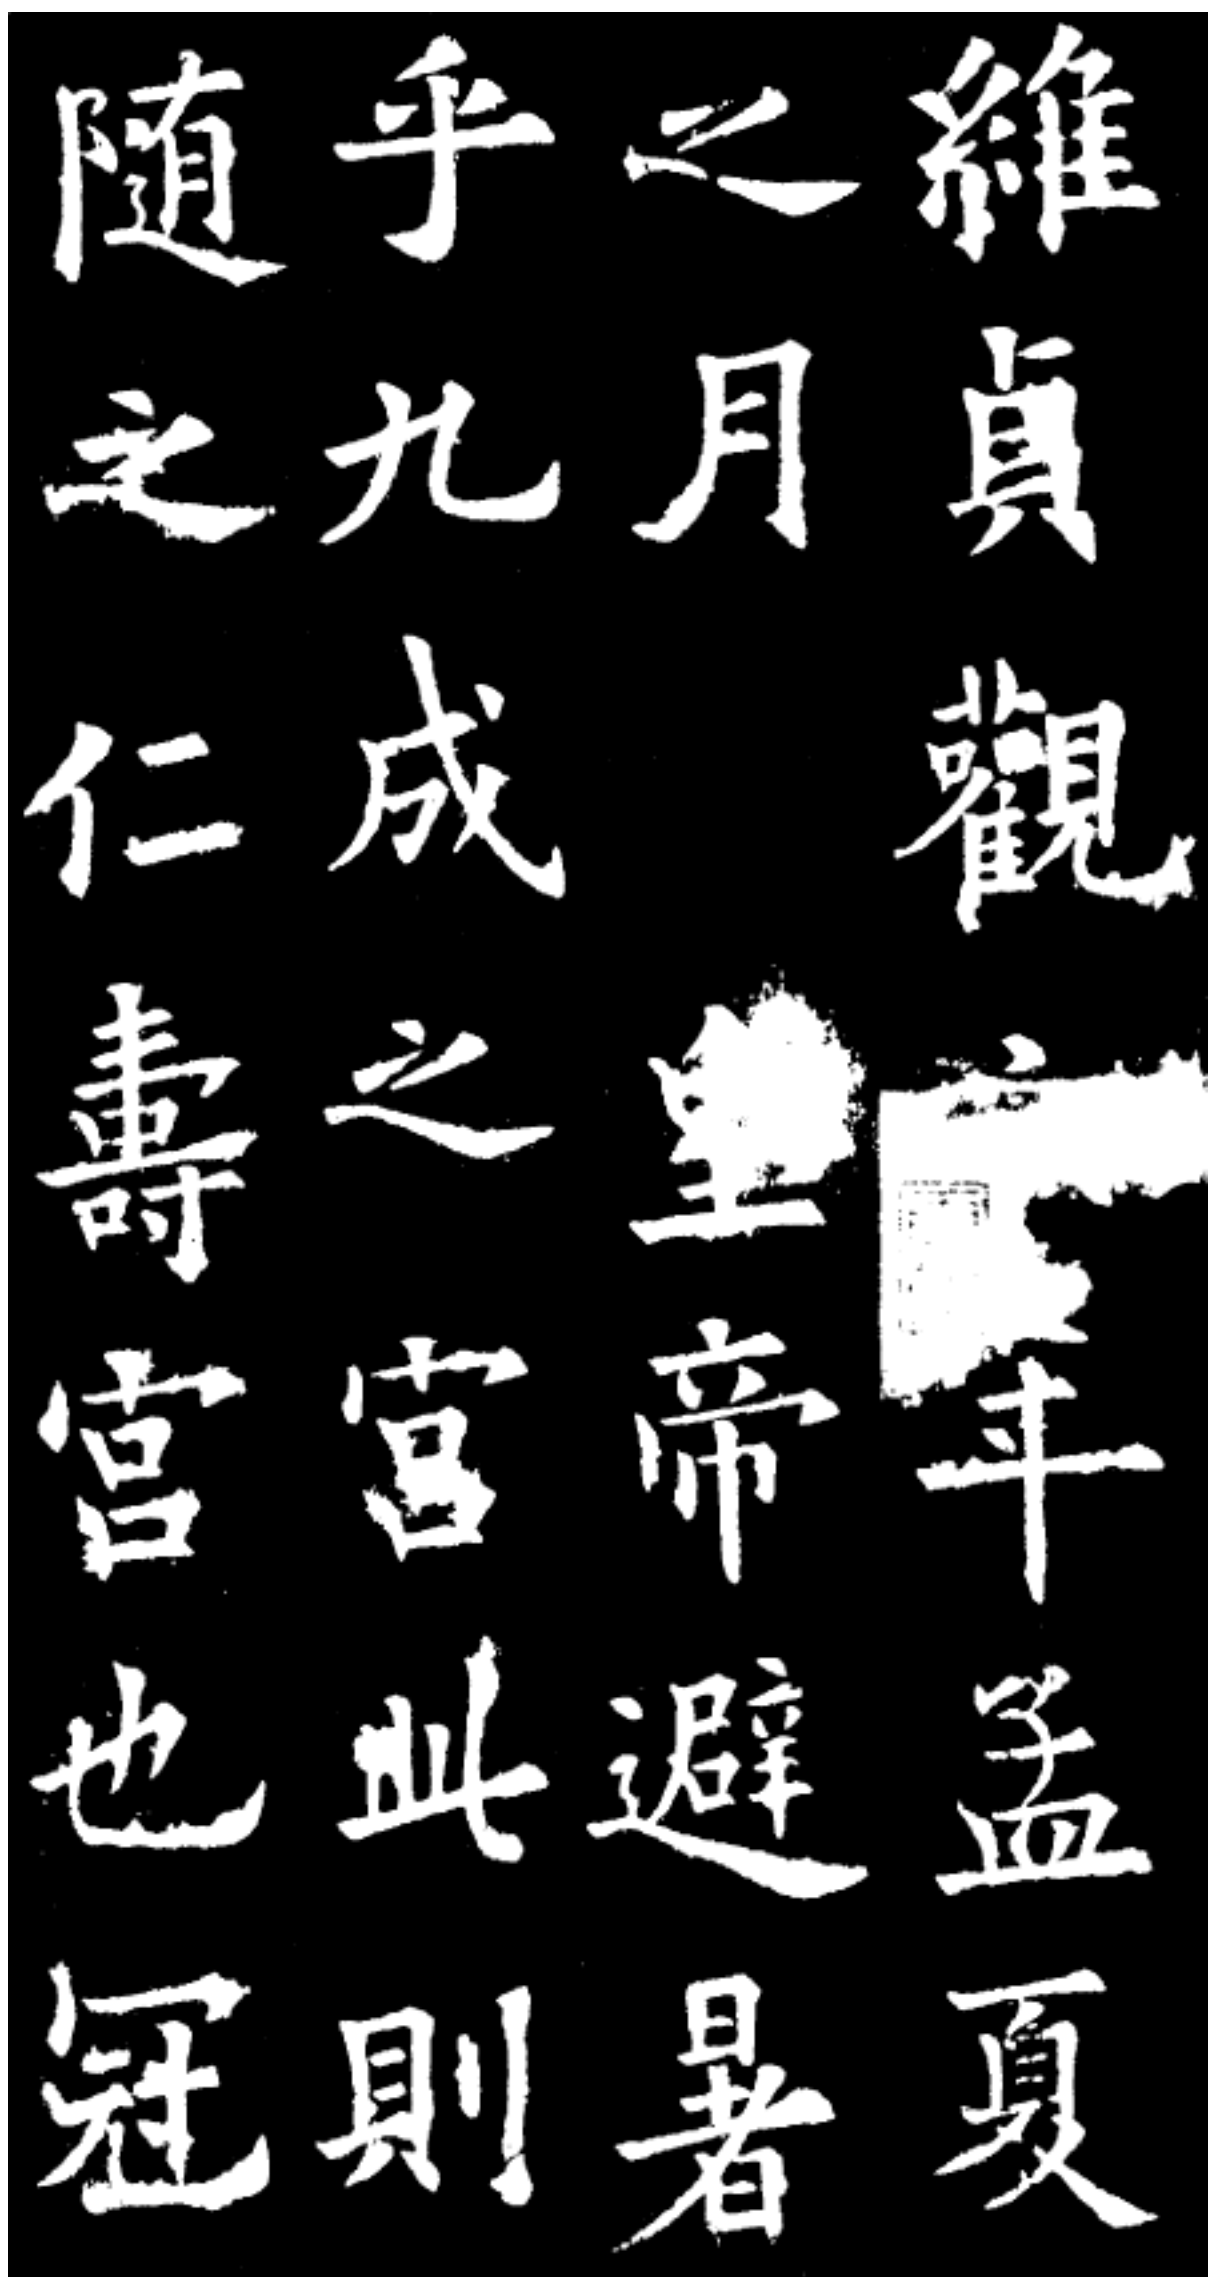 維貞觀年孟夏
之月皇帝避暑
乎九成之宮此則
随之仁壽宮也冠